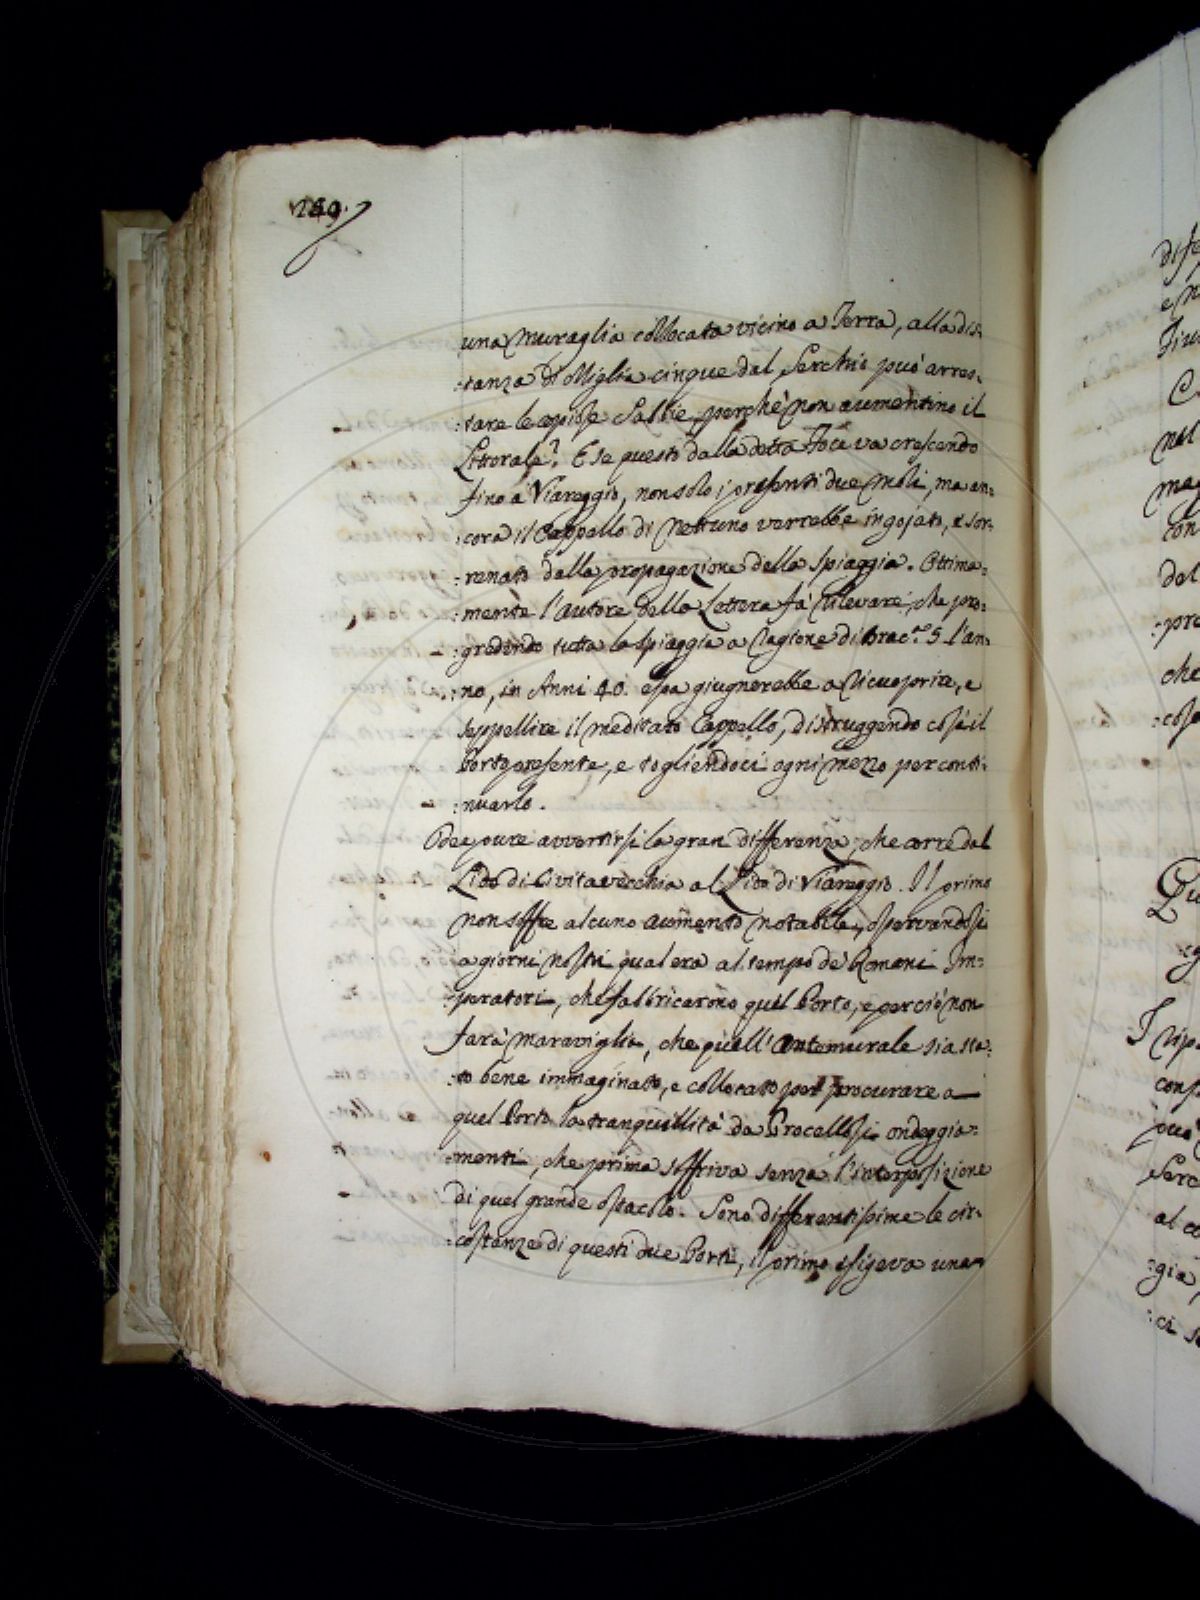 269.
una muraglia collocata vicino a Terra, alla dis:
:tanza di Miglia cinque dal Serchio può arres:
:tare le copiose Sabbie, perchè non aumentino il
Littorale? E se questo dalla detta Foce va crescendo
fino a Viareggio, non solo i presenti due Moli, ma an:
:cora il Cappello di Nettuno verrebbe ingojato, e sor:
:renato dalla propagazione della Spiaggia. Ottima:
:mente l'autore della Lettera fà rilevare, che pro:
:gredendo tutta la Spiaggia a ragione di Brac.ª 5 l'an:
:no, in Anni 40. essa giugnerebbe a ricuoprire, e
seppellire il meditato Cappello, distruggendo così il
Porto presente, e togliendoci ogni mezzo per conti:
:nuarlo.
Dee pure avvertirsi la gran differenza, che corre dal
Lido di Civitavecchia al Lido di Viareggio. Il primo
non soffre alcuno aumento notabile, osservandosi
a giorni nostri qual era al tempo de' Romani Im:
:peratori, che fabbricarono quel Porto, e perciò non
farà maraviglia, che quell'Antemurale sia sta:
:to bene immaginato, e collocato per procurare a
quel Porto la tranquillità da Procellosi ondeggia:
:menti, che prima soffriva senza l'interposizione
di quel grande ostacolo. Sono differentissime le cir:
:costanze di questi due Porti, il primo esigeva una